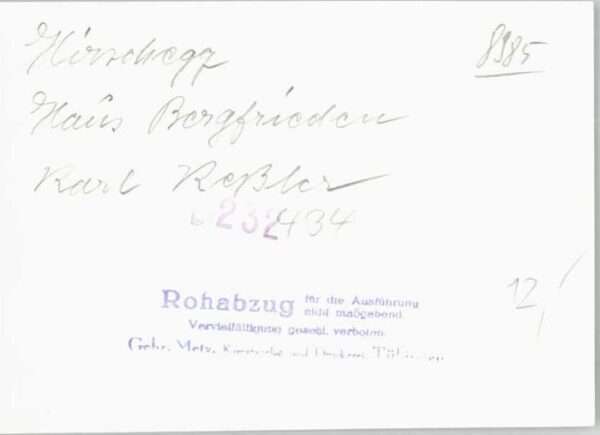 Hirschegg
8985
Haus Bergfrieden
Karl Keßler
232434
Rohabzug für die Ausführung
nicht maßgebend.
Vervielfältigung gesetzl. verboten.
Gebr. Metz, Tübingen
12,